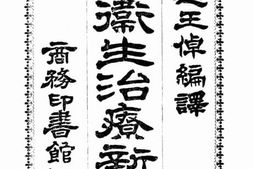 王倬編譯
衞生治療新
商務印書館